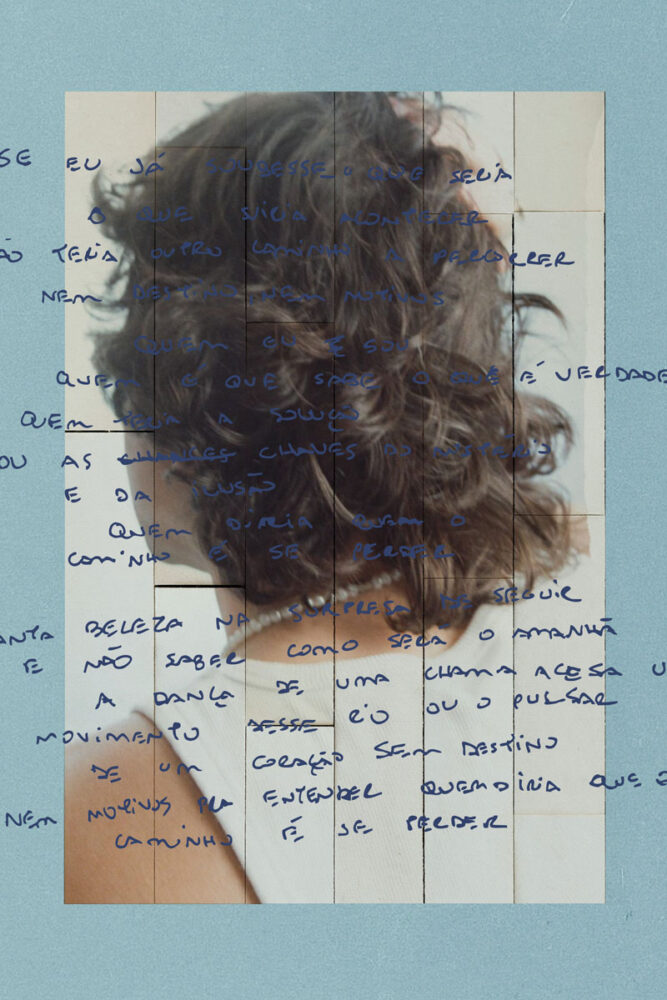 SE EU JÁ SOUBESSE O QUE SERIA
O QUE SIRIA ACONTECER
ÃO TERIA OUTRO CAMINHO A PERCORRER
NEM DESTINO, NEM MOTIVOS
QUEM EU E SOU
QUEM É QUE SABE O QUE É VERDADE
QUEM TERIA A SOLUÇÃO
OU AS CHANCES CHAVES DO MISTÉRIO
E DA ILUSÃO
QUEM DIRIA QUEM O
CAMINHO É SE PERDER
ANTA BELEZA NA SURPRESA DE SEGUIR
E NÃO SABER COMO SERÁ O AMANHÃ
A DANÇA DE UMA CHAMA ACESA U
MOVIMENTO DESSE RIO OU O PULSAR
DE UM CORAÇÃO SEM DESTINO
NEM MOTIVOS PRA ENTENDER QUEM DIRIA QUE O
CAMINHO É SE PERDER